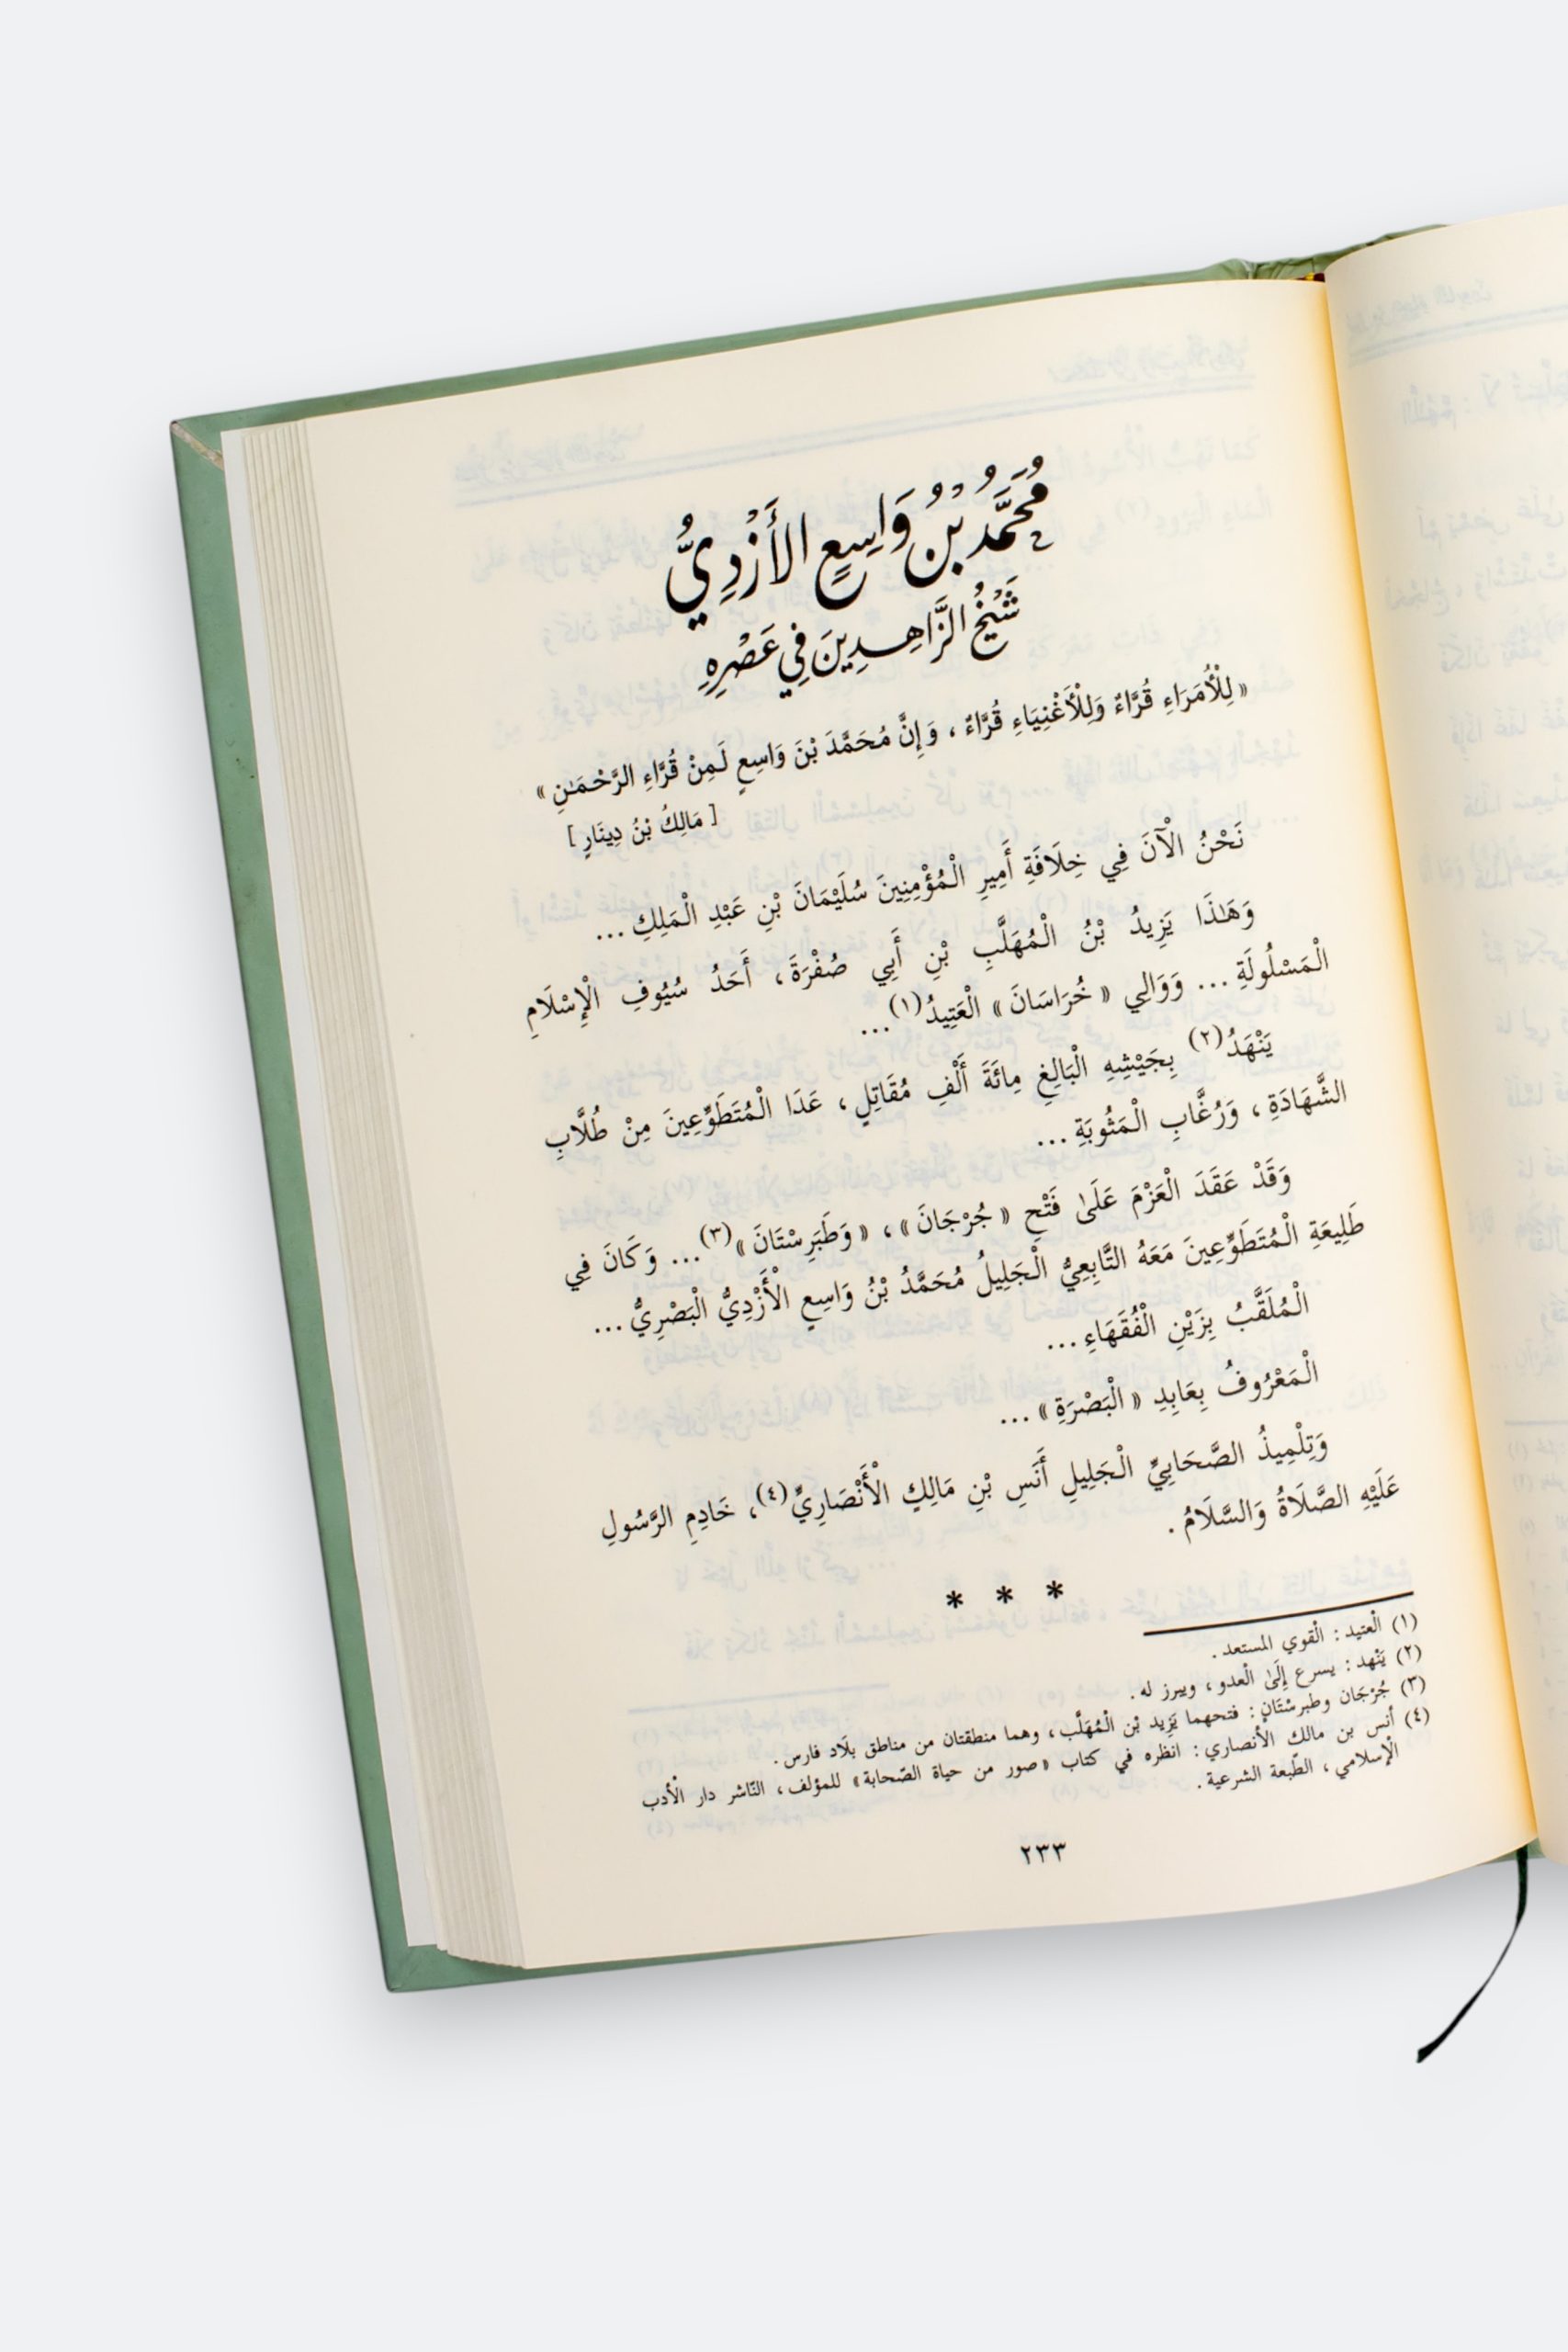 مُحَمَّدُ بْنُ وَاسِعٍ الأَزْدِيُّ
شَيْخُ الزَّاهِدِينَ فِي عَصْرِهِ
« لِلْأُمَرَاءِ قُرَّاءٌ وَلِلْأَغْنِيَاءِ قُرَّاءٌ ، وَإِنَّ مُحَمَّدَ بْنَ وَاسِعٍ لَمِنْ قُرَّاءِ الرَّحْمَـٰنِ »
[ مَالِكُ بْنُ دِينَارٍ ]
نَحْنُ الْآنَ فِي خِلَافَةِ أَمِيرِ الْمُؤْمِنِينَ سُلَيْمَانَ بْنِ عَبْدِ الْمَلِكِ ...
وَهَـٰذَا يَزِيدُ بْنُ الْمُهَلَّبِ بْنِ أَبِي صُفْرَةَ ، أَحَدُ سُيُوفِ الْإِسْلَامِ
الْمَسْلُولَةِ ... وَوَالِي « خُرَاسَانَ » الْعَتِيدُ(١) ...
يَنْهَدُ(٢) بِجَيْشِهِ الْبَالِغِ مِائَةَ أَلْفِ مُقَاتِلٍ ، عَدَا الْمُتَطَوِّعِينَ مِنْ طُلَّابِ
الشَّهَادَةِ ، وَرُغَّابِ الْمَثُوبَةِ ...
وَقَدْ عَقَدَ الْعَزْمَ عَلَىٰ فَتْحِ « جُرْجَانَ » ، « وَطَبَرِسْتَانَ »(٣) ... وَكَانَ فِي
طَلِيعَةِ الْمُتَطَوِّعِينَ مَعَهُ التَّابِعِيُّ الْجَلِيلُ مُحَمَّدُ بْنُ وَاسِعٍ الْأَزْدِيُّ الْبَصْرِيُّ ...
الْمُلَقَّبُ بِزَيْنِ الْفُقَهَاءِ ...
الْمَعْرُوفُ بِعَابِدِ « الْبَصْرَةِ » ...
وَتِلْمِيذُ الصَّحَابِيِّ الْجَلِيلِ أَنَسِ بْنِ مَالِكٍ الْأَنْصَارِيِّ(٤) ، خَادِمِ الرَّسُولِ
عَلَيْهِ الصَّلَاةُ وَالسَّلَامُ .
* * *
(١) الْعتيد : الْقوي المستعد .
(٢) يَنْهد : يسرع إِلَىٰ الْعدو ، ويبرز له .
(٣) جُرْجَان وطبرسْتَان : فتحهما يَزِيد بْن الْمُهَلَّب ، وهما منطقتان من مناطق بلَاد فارس .
(٤) أنس بن مالك الأنصاري : انظره في كتاب « صور من حياة الصّحابة » للمؤلف ، النّاشر دار الْأدب
الْإسلامي ، الطّبعة الشرعية .
٢٣٣